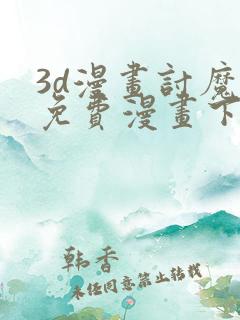 3d漫畫討魔
免費漫畫下
韩香
未经同意禁止转载